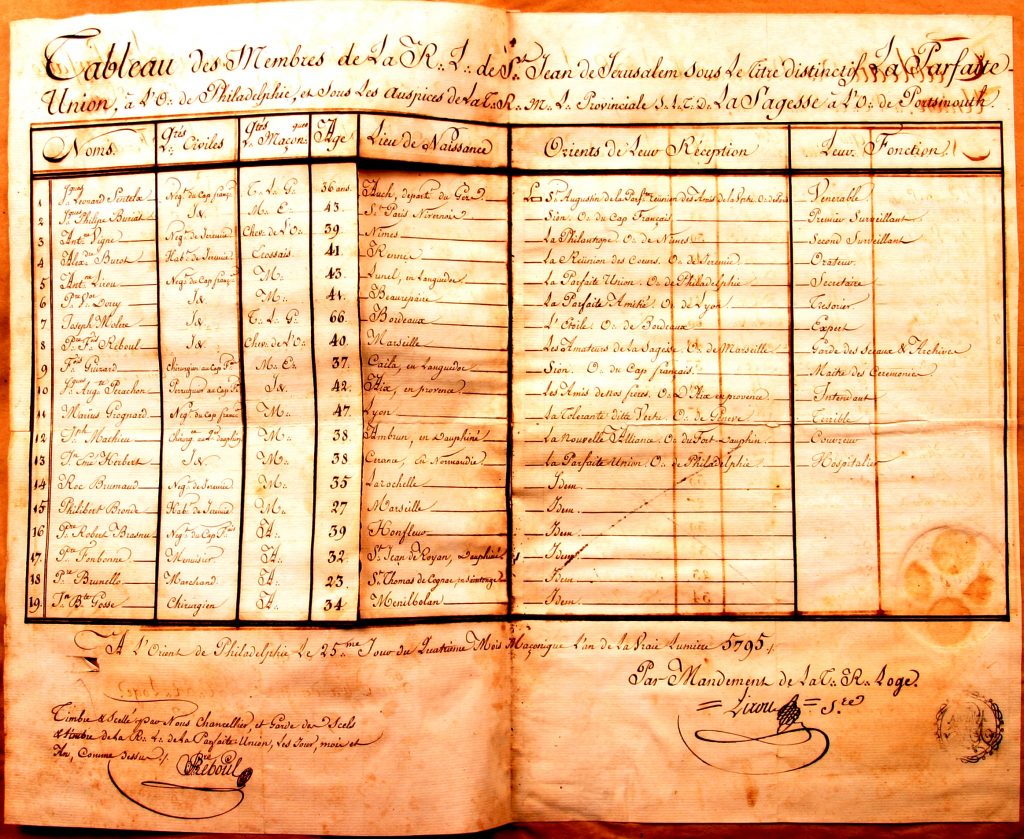 Tableau des Membres de La R∴ L∴ de St. Jean de Jerusalem sous Le titre distinctif La Parfaite-
Union, à L'O∴ de Philadelphie, et sous Les auspices de La T∴ R∴ M∴ L∴ Provinciale S∴ L∴ T∴ de La Sagesse à L'O∴ de Portsmouth.
Noms. Qtés L∴ Civiles Qtés L∴ Maçon∴ques Age Lieu de Naissance Orients de Leur Réception Leur Fonction.
1 Leonard Negt. du Cap franç. T∴ L∴ G∴ 36 ans. Auch, depart. du Gers St. Augustin de La Parfte. réunion des Amis de la Vertu Venerable
2 Philipe Buriat Id. M∴ E∴ 43. Nivernois Sion. O∴ du Cap Français Premier Surveillant
3 Antne. Vigne Negt. de Jeremie Chev. de L'O∴ 39. Nimes La Philantrope O∴ de Nimes Second Surveillant
4 Alexdre. Burot Habt. de Jeremie Ecossais 41. Rennes La Réunion des Coeurs. O∴ de Jeremie Orateur
5 Antne. Lirou Negt. du Cap franç. M∴ 43. Lunel, en Languedoc La Parfaite Union. O∴ de Philadelphie Secretaire
6 Dorey Id. M∴ 41. Beaurepaire La Parfaite Amitié. O∴ de Lyon Tresorier
7 Joseph Id. T∴ L∴ G∴ 66. Bordeaux L'Etoile. O∴ de Bordeaux Expert
8 Reboul Id. Chev. de L'O∴ 40. Marseille Les Amateurs de La Sagesse O∴ de Marseille Garde des sceaux & Archives
9 Fs. Guirard Chirurgien au Cap M∴ E∴ 37. en Languedoc Sion. O∴ du Cap français. Maitre des Ceremonies
10 Augte. Perachon Perruquier au Cap Id. 42. Aix, en provence Les Amis de nos freres. O∴ D'Aix en provence Intendant
11 Marius Grognard Negt. du Cap franç. M∴ 47. Lyon La Tolerante ditte Verte O∴ de Geneve Terrible
12 Jph. Mathieu M∴ 38. Ambrun, en Dauphiné La Nouvelle Alliance O∴ du Fort Dauphin. Couvreur
13 Herbert Id. M∴ 38 en Normandie La Parfaite Union, O∴ de Philadelphie Hospitalier
14 Roc Brumaud Negt. de Jeremie M∴ 35 Larochelle Idem
15 Philibert Bronde Habt. de Jeremie M∴ 27 Marseille Idem
16 Robert Negt. du Cap A∴ 39 Honfleur Idem
17. Fonbonne Menuisier A∴ 32. St. Jean de Royan, Dauphiné Idem
18 Brunello Marchand A∴ 23. St. Thomas de Cognac Idem
19. Jn. Bte. Gosse Chirurgien A∴ 34 Menilbolan Idem
A L'Orient de Philadelphie Le 25me. Jour du Quatrieme Mois Maçonique L'an de La Vraie Lumiere 5795.
Par Mandement de La T∴ R∴ Loge.
Lirou Sre
Timbré & Scellé par Nous Chancellier, et Garde des Scels
& timbre de La R∴ L∴ de La Parfaite Union, Les Jour, mois et
An, Comme dessus
Reboul